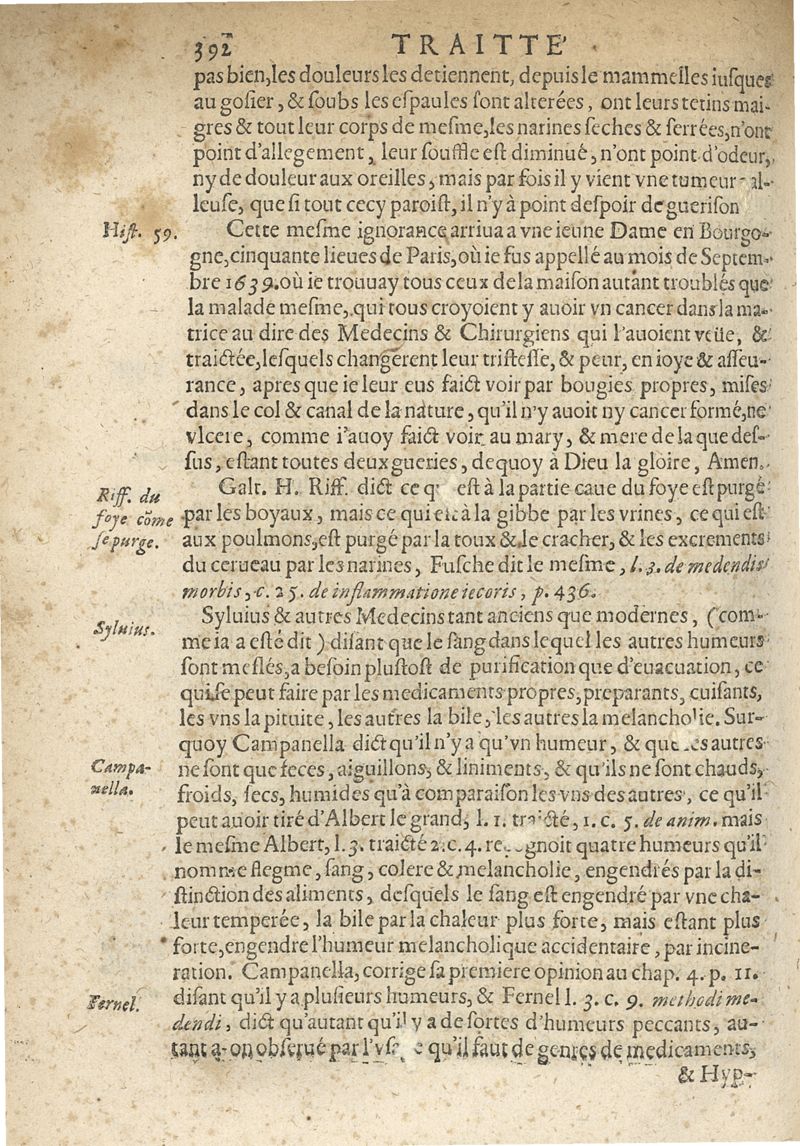 392 TRAITTE'
pas bien, les douleurs les detiennent, depuis le mammelles iusques
au gosier, & soubs les espaules sont alterées, ont leurs tetins mai-
gres & tout leur corps de mesme, les narines seches & serrées, n'ont
point d'allegement, leur souffle est diminué, n'ont point d'odeur,
ny de douleur aux oreilles, mais par fois il y vient vne tumeur al-
leuse, que si tout cecy paroist, il n'y à point despoir de guerison
Hist. 59. Cette mesme ignorance arriua a vne ieune Dame en Bourgo-
gne, cinquante lieues de Paris, où ie fus appellé au mois de Septem-
bre 1639. où ie trouuay tous ceux de la maison autant troublés que
la malade mesme, qui tous croyoient y auoir vn cancer dans la ma-
trice au dire des Medecins & Chirurgiens qui l'auoient veüe, &
traictée, lesquels changerent leur tristesse, & peur, en ioye & asseu-
rance, apres que ie leur eus faict voir par bougies propres, mises
dans le col & canal de la nature, qu'il n'y auoit ny cancer formé, ne
vlcere, comme i'auoy faict voir au mary, & mere de la que des-
sus, estant toutes deux gueries, dequoy à Dieu la gloire, Amen.
Riff. du
foye cõme
se purge.
Galt. H. Riff. dict ce est à la partie caue du foye est purgé
par les boyaux, mais ce qui à la gibbe par les vrines, ce qui est
aux poulmons, est purgé par la toux & le cracher, & les excrements
du cerueau par les narines, Fusche dit le mesme, l. 3. de medendis
morbis, c. 25. de inflammatione iecoris, p. 436.
Syluius. Syluius & autres Medecins tant anciens que modernes, (com-
me ia a esté dit) disant que le sang dans lequel les autres humeurs
sont meslés, a besoin plustost de purification que d'euacuation, ce
qui se peut faire par les medicaments propres, preparants, cuisants,
les vns la pituite, les autres la bile, les autres la melancholie. Sur-
quoy Campanella dict qu'il n'y a qu'vn humeur, & que autres
Campa-
nella.
ne sont que feces, aiguillons, & liniments, & qu'ils ne sont chauds,
froids, secs, humides qu'à comparaison les vns des autres, ce qu'il
peut auoir tiré d'Albert le grand, l. 1. 1. c. 5. de anim. mais
le mesme Albert, l. 3. traicté 2. c. 4. quatre humeurs qu'il
nomme flegme, sang, colere & melancholie, engendrés par la di-
stinction des aliments, desquels le sang est engendré par vne cha-
leur temperée, la bile par la chaleur plus forte, mais estant plus
forte, engendre l'humeur melancholique accidentaire, par incine-
ration. Campanella, corrige sa premiere opinion au chap. 4. p. 11.
Fernel. disant qu'il y a plusieurs humeurs, & Fernel l. 3. c. 9. methodi me-
dendi, dict qu'autant qu'il y a de sortes d'humeurs peccants, au-
tant a-on obserué par qu'il faut de genres de medicaments,
& Hyp-